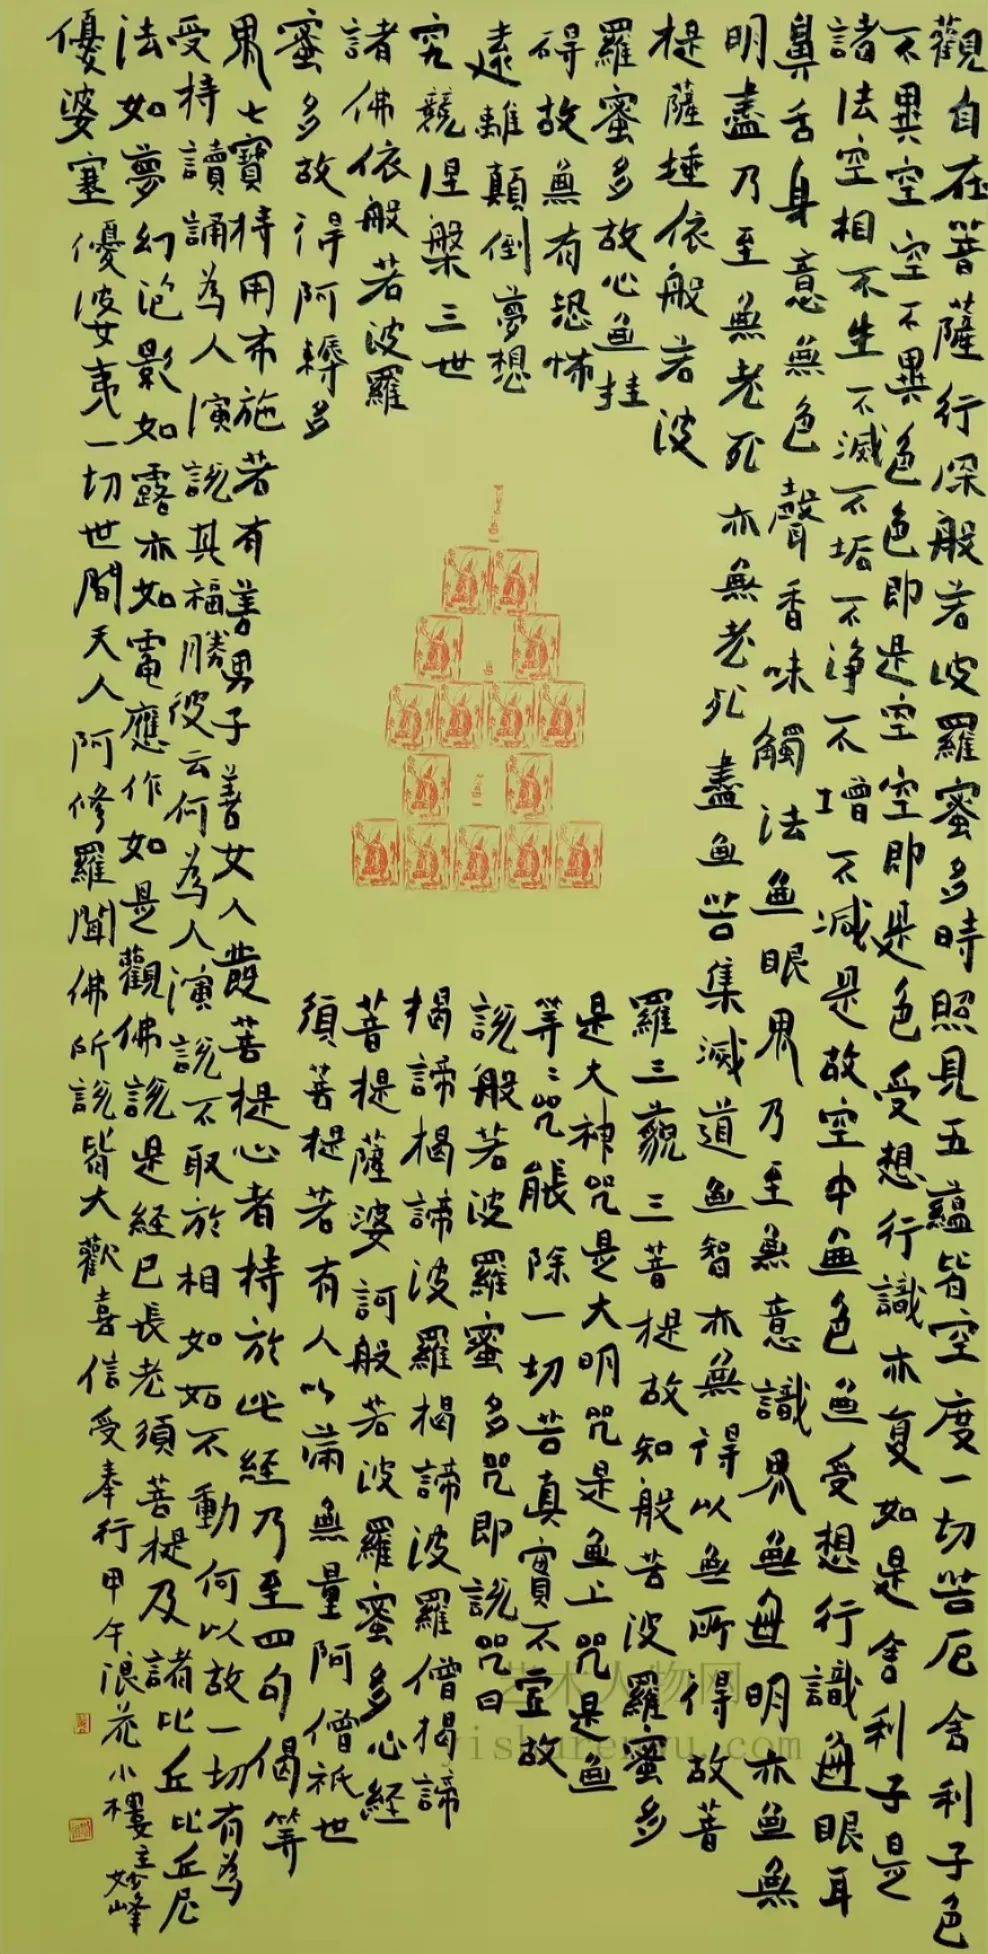 觀自在菩薩行深般若波羅蜜多時照見五蘊皆空度一切苦厄舍利子色
不異空空不異色色即是空空即是色受想行識亦复如是舍利子是
諸法空相不生不滅不垢不淨不增不減是故空中無色無受想行識無眼耳
鼻舌身意無色聲香味觸法無眼界乃至無意識界無無明亦無無
明盡乃至無老死亦無老死盡無苦集滅道無智亦無得以無所得故菩
提薩埵依般若波
羅蜜多故心無挂
碍故無有恐怖
遠離顛倒夢想
究競涅槃三世
諸佛依般若波羅
蜜多故得阿耨多
羅三藐三菩提故知般若波羅蜜多
是大神咒是大明咒是無上咒是無
等〻咒能除一切苦真實不虛故
說般若波羅蜜多咒即說咒曰
揭諦揭諦波羅揭諦波羅僧揭諦
菩提薩婆訶般若波羅蜜多心経
須菩提若有人以滿無量阿僧祇世
界七寶持用布施若有善男子善女人發菩提心者持於此経乃至四句偈等
受持讀誦為人演說其福勝彼云何為人演說不取於相如如不動何以故一切有為
法如夢幻泡影如露亦如電應作如是觀佛說是経已長老須菩提及諸比丘比丘尼
優婆塞優婆夷一切世間天人阿修羅聞佛所說皆大歡喜信受奉行甲午浪花小樓主妙峰
艺术人物网
yishurenwu.com